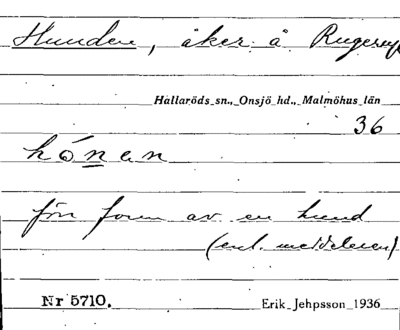 Hunden, åker å
Hallaröds sn., Onsjö hd., Malmöhus län
36
hónen
från form av en hund
(enl. meddelaren)
Nr 5710.
Erik Jehpsson 1936